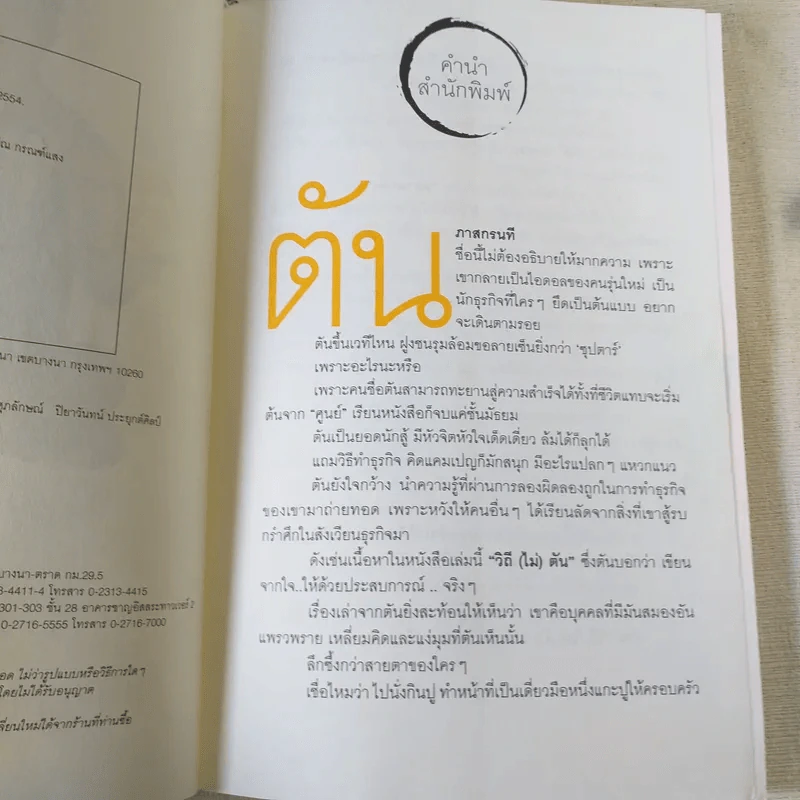 2554.
กรณฑ์แสง
เขตบางนา กรุงเทพฯ 10260
ปิยาวันทน์ ประยุกต์ศิลป์
บางนา-ตราด กม.29.5
โทรสาร 0-2313-4415
301-303 ชั้น 28 อาคารชาญอิสสระทาวเวอร์ 2
0-2716-5555 โทรสาร 0-2716-7000
ไม่ว่ารูปแบบหรือวิธีการใดๆ
โดยไม่ได้รับอนุญาต
เปลี่ยนใหม่ได้จากร้านที่ท่านซื้อ
คำนำ
สำนักพิมพ์
ตัน
ภาสกรนที
ชื่อนี้ไม่ต้องอธิบายให้มากความ เพราะ
เขากลายเป็นไอดอลของคนรุ่นใหม่ เป็น
นักธุรกิจที่ใครๆ ยึดเป็นต้นแบบ อยาก
จะเดินตามรอย
ตันขึ้นเวทีไหน ฝูงชนรุมล้อมขอลายเซ็นยิ่งกว่า ‘ซุปตาร์’
เพราะอะไรนะหรือ
เพราะคนชื่อตันสามารถทะยานสู่ความสำเร็จได้ทั้งที่ชีวิตแทบจะเริ่ม
ต้นจาก “ศูนย์” เรียนหนังสือก็จบแค่ชั้นมัธยม
ตันเป็นยอดนักสู้ มีหัวจิตหัวใจเด็ดเดี่ยว ล้มได้ก็ลุกได้
แถมวิธีทำธุรกิจ คิดแคมเปญก็มักสนุก มีอะไรแปลกๆ แหวกแนว
ตันยังใจกว้าง นำความรู้ที่ผ่านการลองผิดลองถูกในการทำธุรกิจ
ของเขามาถ่ายทอด เพราะหวังให้คนอื่นๆ ได้เรียนลัดจากสิ่งที่เขาสู้รบ
กรำศึกในสังเวียนธุรกิจมา
ดังเช่นเนื้อหาในหนังสือเล่มนี้ “วิถี (ไม่) ตัน” ซึ่งตันบอกว่า เขียน
จากใจ..ให้ด้วยประสบการณ์ .. จริงๆ
เรื่องเล่าจากตันยิ่งสะท้อนให้เห็นว่า เขาคือบุคคลที่มีมันสมองอัน
แพรวพราย เหลี่ยมคิดและแง่มุมที่ตันเห็นนั้น
ลึกซึ้งกว่าสายตาของใครๆ
เชื่อไหมว่า ไปนั่งกินปู ทำหน้าที่เป็นเดี่ยวมือหนึ่งแกะปูให้ครอบครัว